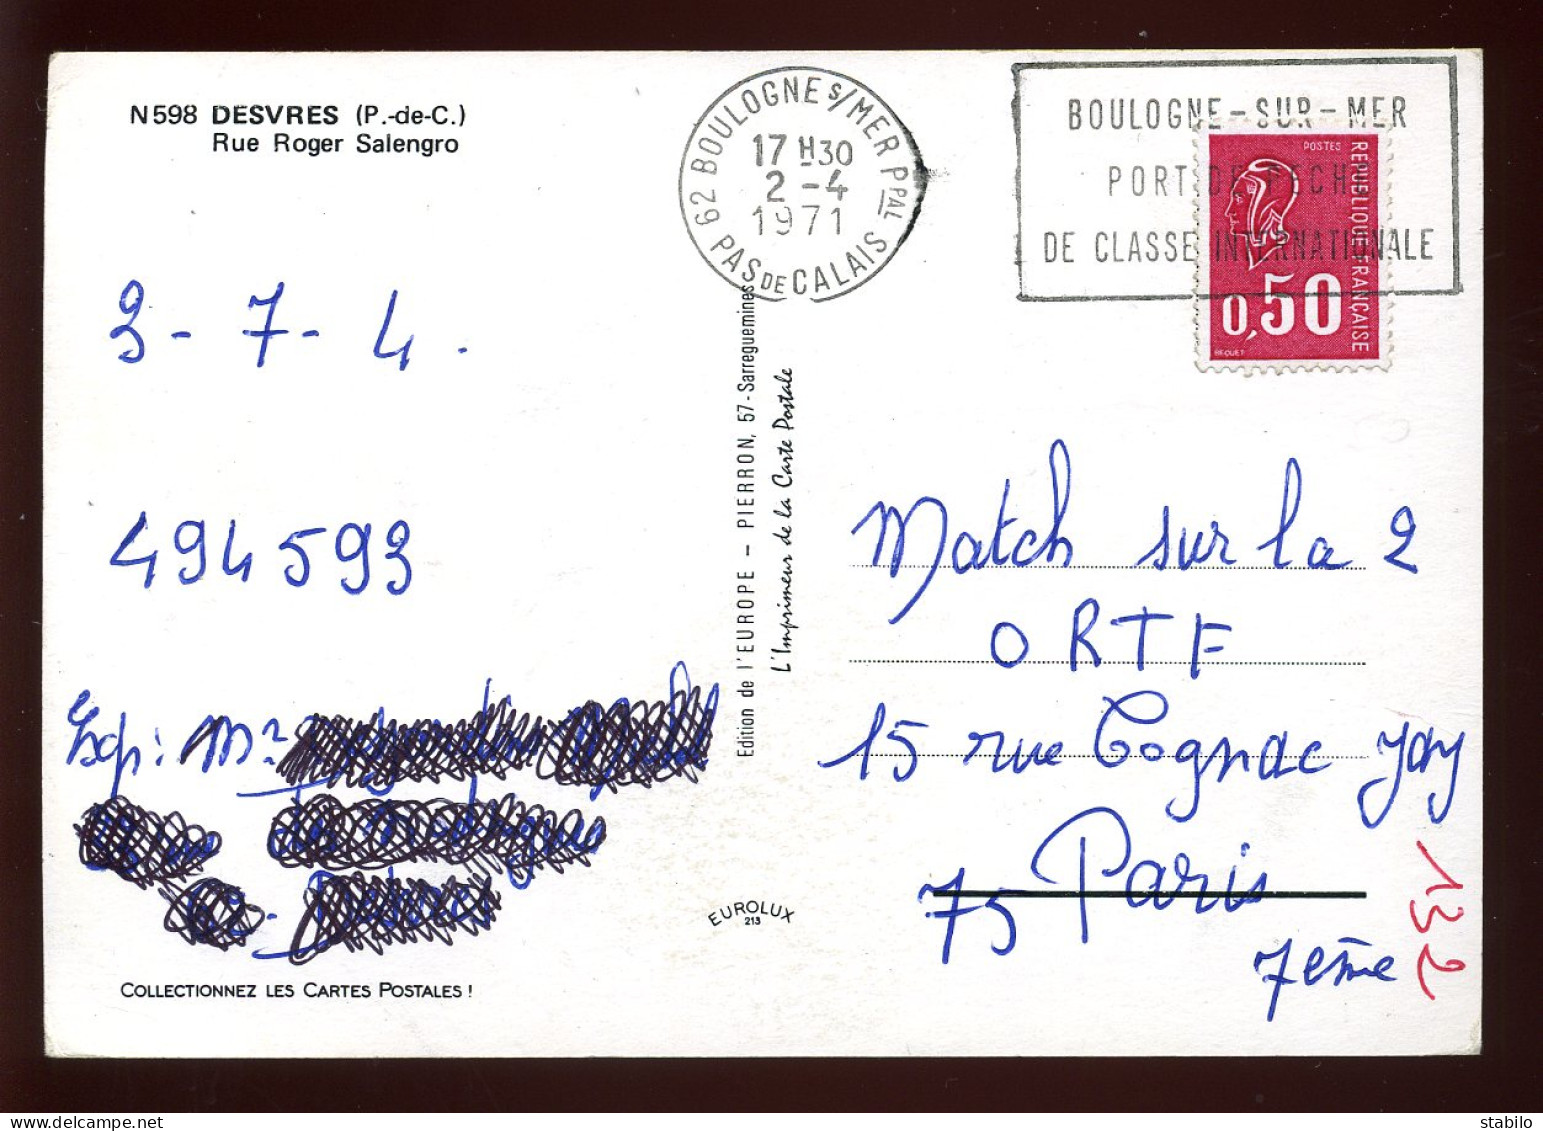 N598 DESVRES (P.-de-C.)
Rue Roger Salengro
62 BOULOGNE S/MER PPAL
17 H30
2 -4
1971
PAS DE CALAIS
BOULOGNE-SUR-MER
PORT DE PECHE
DE CLASSE INTERNATIONALE
POSTES
REPUBLIQUE FRANÇAISE
0,50
BEQUET
9-7-4.
494593
Exp: Mr
Edition de l'EUROPE - PIERRON, 57-Sarreguemines
L'Imprimeur de la Carte Postale
Match sur la 2
ORTF
15 rue Cognac Jay
75 Paris
7ème
132
EUROLUX
213
COLLECTIONNEZ LES CARTES POSTALES !
stabilo
delcampe.net